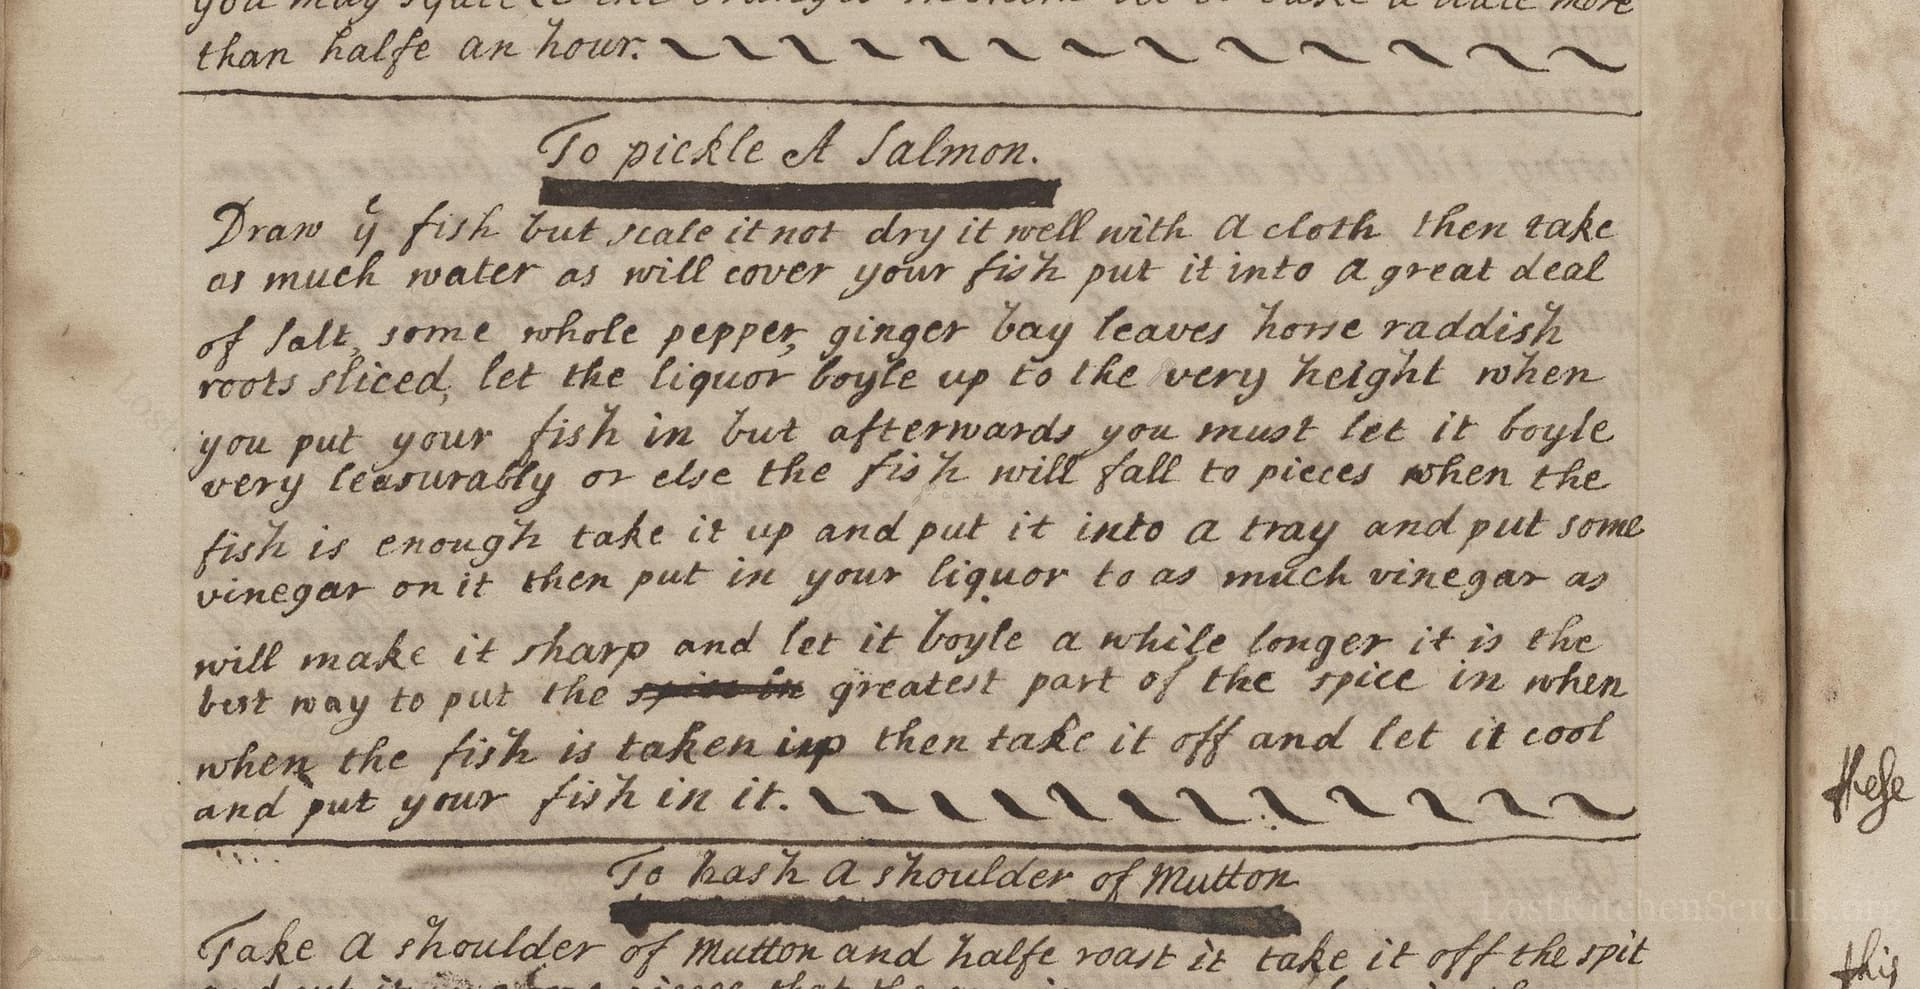 you may squeeze the oranges
more
than halfe an hour.
To pickle A Salmon.
Draw yͤ fish but scale it not dry it well with A cloth then take
as much water as will cover your fish put it into A great deal
of Salt, some whole pepper, ginger bay leaves horse raddish
roots sliced, let the liquor boyle up to the very height when
you put your fish in but afterwards you must let it boyle
very leasurably or else the fish will fall to pieces when the
fish is enough take it up and put it into A tray and put some
vinegar on it then put in your liquor to as much vinegar as
will make it sharp and let it boyle a while longer it is the
best way to put the spice in greatest part of the spice in when
when the fish is taken up then take it off and let it cool
and put your fish in it.
To hash A shoulder of Mutton
Take A shoulder of Mutton and halfe roast it take it off the spit
these
this
LostKitchenScrolls.org